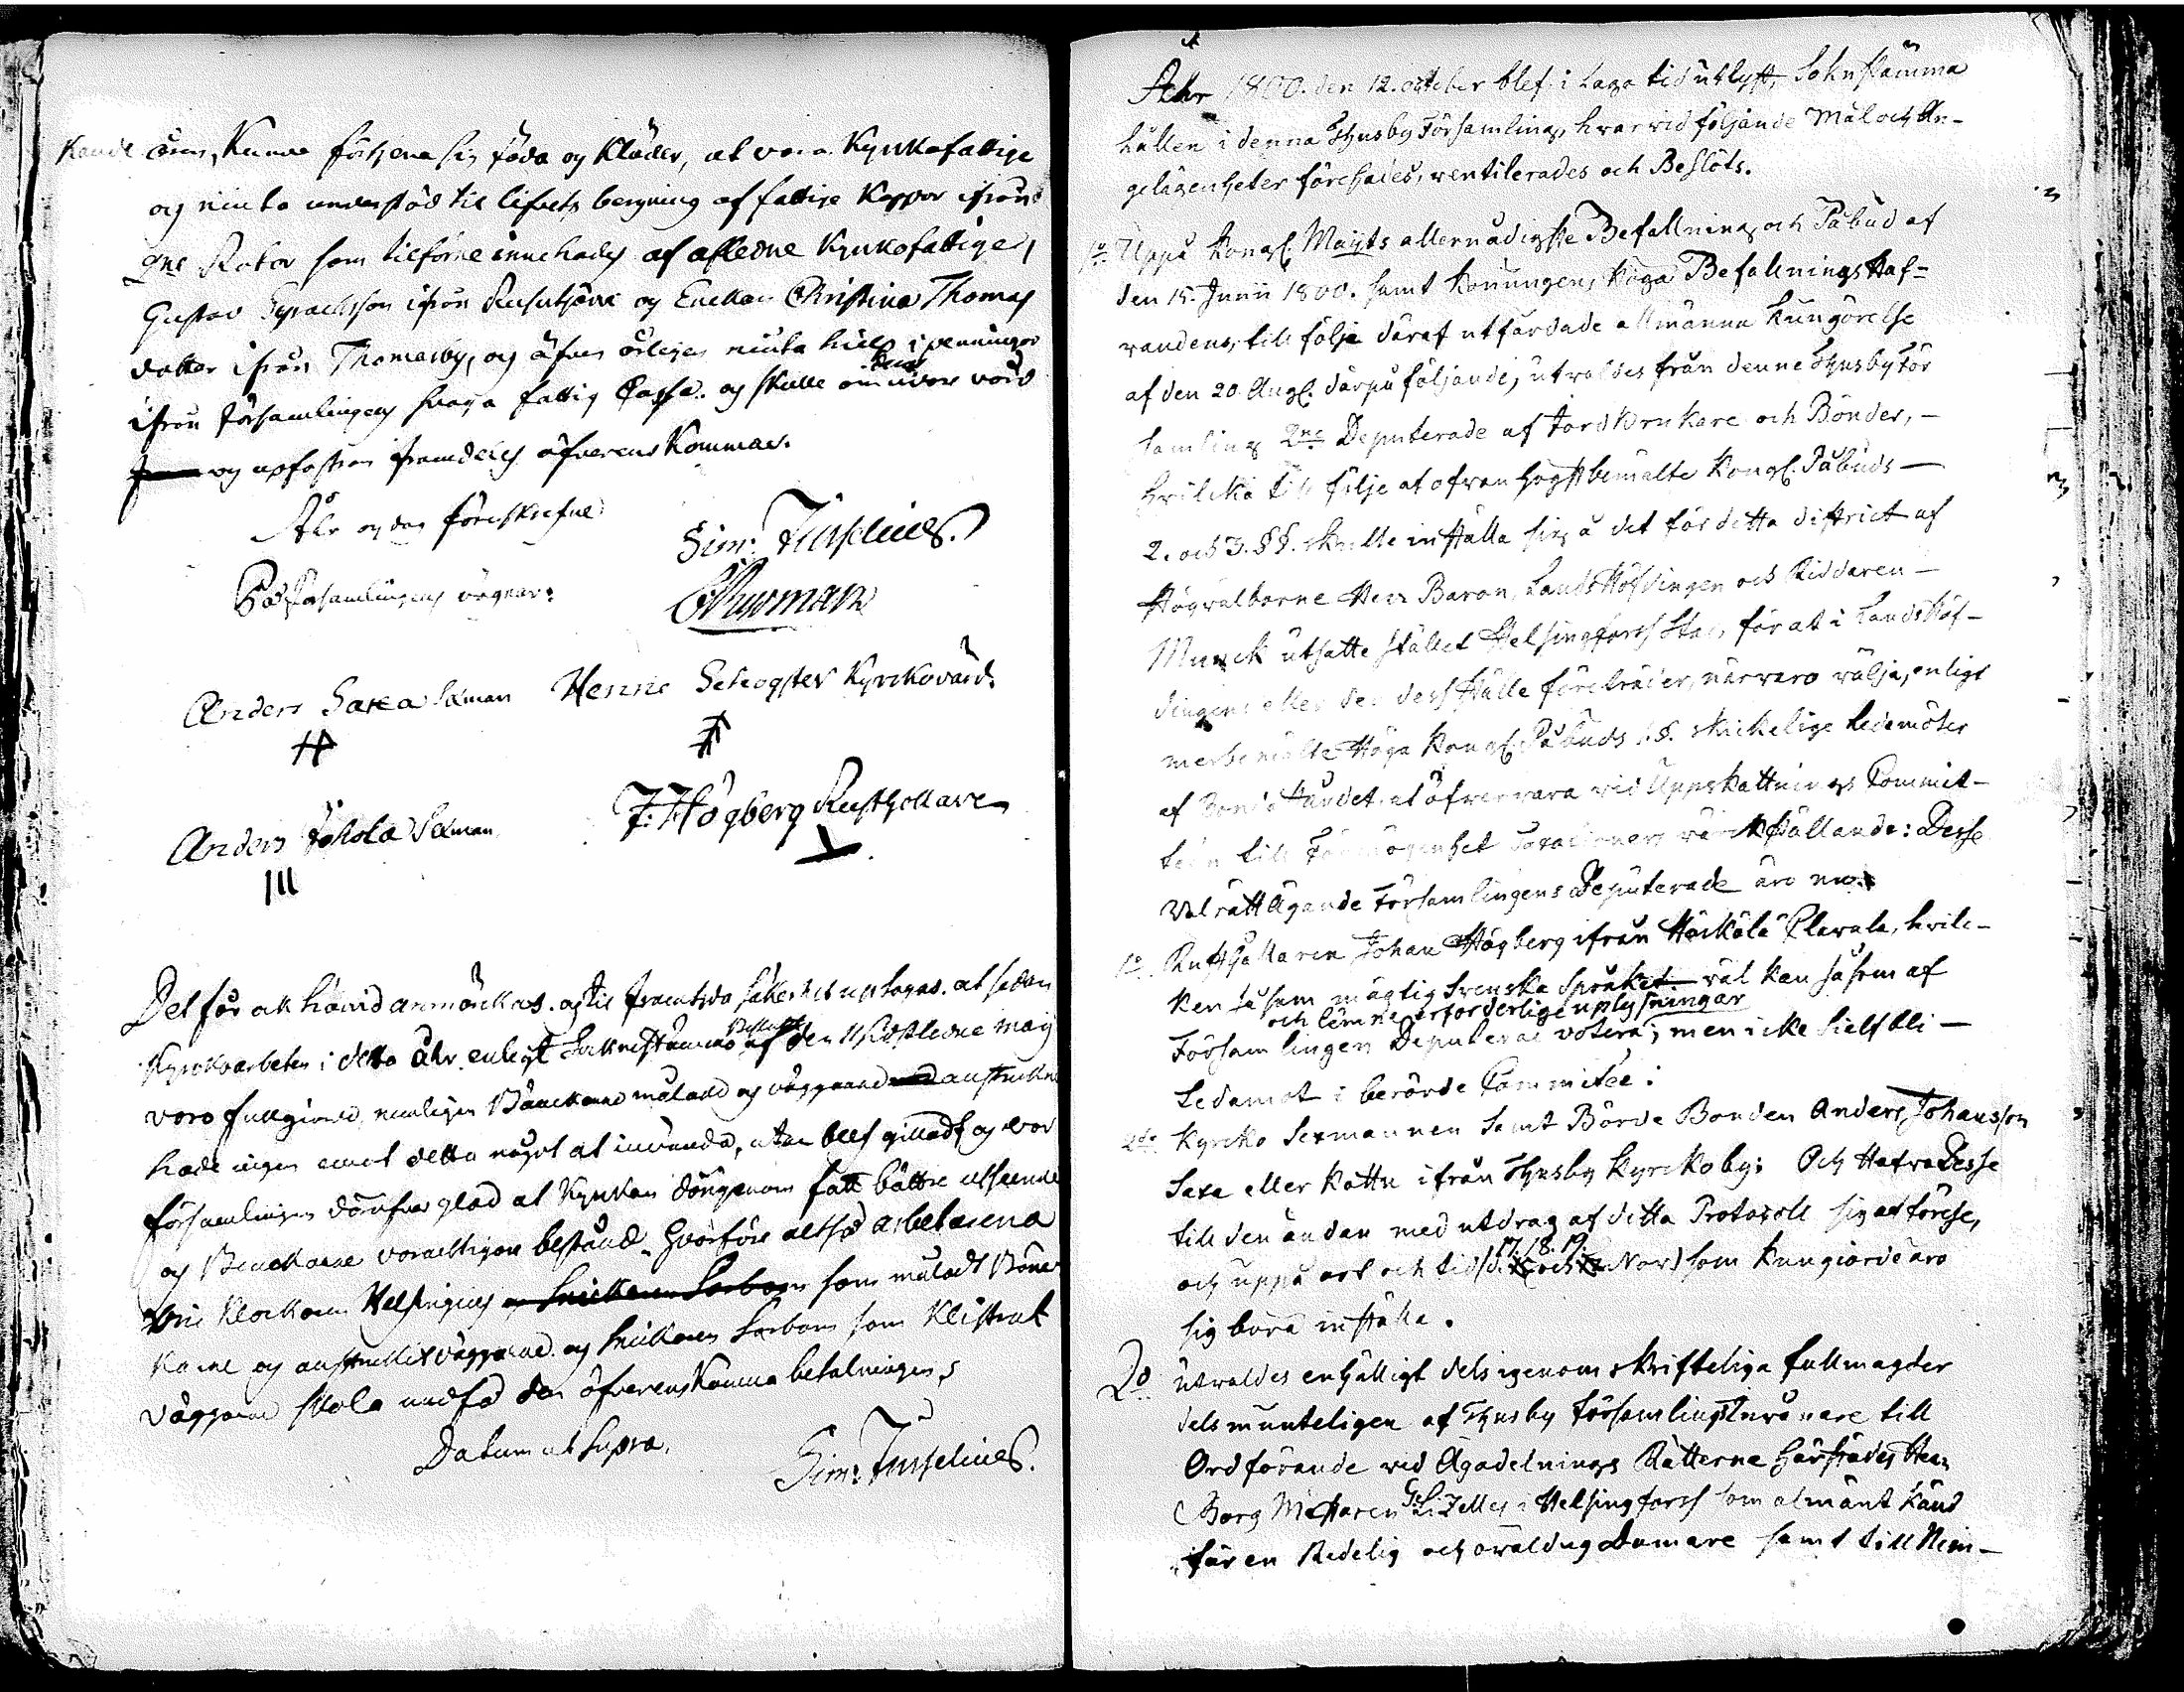 Kande ären, Kunna förtjena sig föda og Kläder, at vara Kyrkofattige
og niuta understöd til lifvets bergning af fattige Kappor ifrån
2ne Rotar som tilförne innehades af aflidne Kyrkofattige,
Gustav ifrån og Enckan Christina Thomas
dotter ifrån Thomasby, og äfven årligen niuta hielp i penningar
ifrån Församlingens svaga fattig Cassa. og skulle om deras vård
og upfostran framdeles öfverens Kommas.
År og dag föreskrefne
Sim: Juselius.
På Församlingens vägnar:
Anders Saxa Sexman Henric Skogster Kyrkovärd.
Anders Jokela Sexman J. Högberg Rusthollare
Det bör ock härvid anmärckas. og til framtida säkerhet uptagas. at sedan
Kyrkoarbeten i detta åhr enligt Sockenstämmo Beslutet af den sistledne Maij
voro fullgiorde, nemligen Bänckarne målade og väggarne anstrukne
hade ingen emot detta något at invända, utan blef gilladt og var
församlingen däröfver glad at Kyrkan därigenom fått bättre utseende
og Bänckarne varacktigare bestånd. Hvarföre altså arbetarena
Klockaren Helsingius og Snickaren Sorbom som måladt Bänc
karne og anstrukit väggarne og Snickaren Sorbom som Klistrat
väggarne skola undfå den öfverenskomna betalningen.
Datum ut Supra.
Sim: Juselius.
Åhr 1800. den 12. october blef i Laga tid utlyst, Soknstämma
hållen i denna Thusby Församling, hvarvid följande Mål och An-
gelägenheter förehades, ventilerades och Beslöts.
1o Uppå Kongl. Maijts allernådigste Befallning och Påbud af
den 15. Junii 1800. samt Konungens Höga Befallningshaf-
vandens, till följe däraf utfärdade allmänna Kungörelse
af den 20 Aug. därpå följande, utvaldes från denne Thusby För
samling 2ne Deputerade af Jordbrukare och Bönder, -
hvilcka till följe af ofvan högstbemälte Kongl. Påbuds -
2. och 3. §§. skulle inställa sig å det för detta district af
Högvälborne Herr Baron, Landshöfdingen och Riddaren -
Munck utsatte stället Helsingfors Stad, för at i Landshöf-
dingens eller den dess ställe företräder, närvaro välja, enligt
merbemälte Höga Kongl. Påbuds 1. §. skickelige Ledamöter
af Bondeståndet at öfvervara vid Uppskattnings Commit-
teen till Förmögenhet Taxationens värckställande: Desse
Valrätt ägande Församlingens Deputerade äro nu.
1o. Rusthållaren Johan Högberg ifrån Häckälä Clavala, hvilc-
ken såsom mägtig Svenska Språket väl kan såsom af
och lemna erforderlige uplysningar
Församlingen Deputerad votera; men icke sielf bli -
Ledamot i berörde Committée:
2do Kyrcko Sexmannen samt Börde Bonden Anders Johansson
Saxa eller Kattu ifrån Thusby Kyrckoby; Och Hafva Desse
till den ändan med utdrag af detta Protocoll sig at förese,
17. 18. 19.
och uppå ort och tid (d. och Nov) som kungiorde äro
sigböra inställa.
2o utvaldes enhälligt dels igenom skrifteliga fullmagder
dels munteligen af Thusby Församlings Invånare till
Ordförande vid Ägodelnings Rätterne härstädes Herr
Borg Mästaren i Helsingfors som almänt känd
för en Redelig och oväldug Domare samt till Näm-